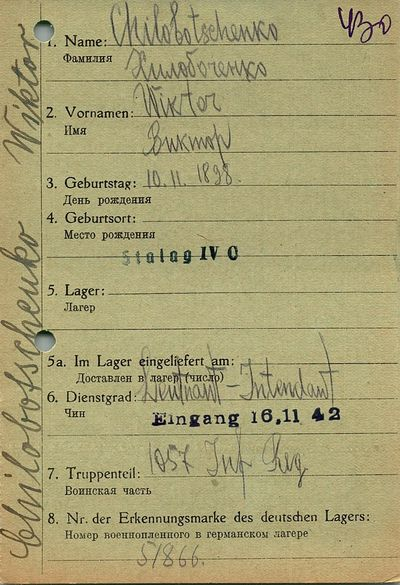 УВО
1. Name: Chilobotschenko
Фамилия Хилобоченко
2. Vornamen: Wiktor
Имя Виктор
3. Geburtstag: 10.11.1898.
День рождения
4. Geburtsort:
Место рождения
Stalag IV C
5. Lager:
Лагер
5a. Im Lager eingeliefert am:
Доставлен в лагер (число)
6. Dienstgrad: Leutnant-Intendant
Чин
Eingang 16.11 42
7. Truppenteil: 1057 Inf Reg
Воинская часть
8. Nr. der Erkennungsmarke des deutschen Lagers:
Номер военнопленного в германском лагере
51866.
Chilobotschenko Wiktor